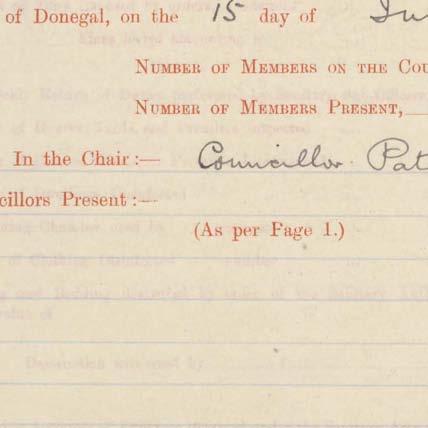 of Donegal, on the 15 day of
NUMBER OF MEMBERS ON THE COU
NUMBER OF MEMBERS PRESENT,
In the Chair:— Councillor Pat
cillors Present:—
(As per Page 1.)